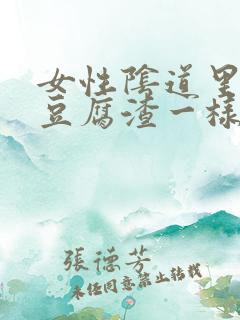 女性陰道里
豆腐渣一樣
張德芳
未经同意禁止转载